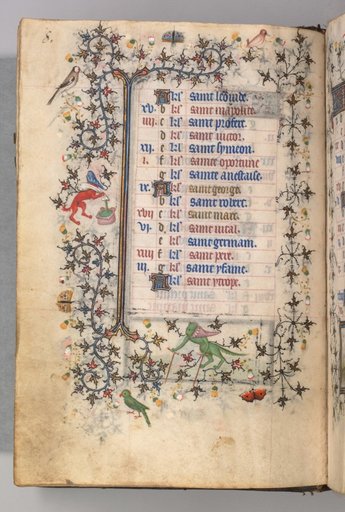 A kl saint leonide.
xv. b kl saint
iiii. c kl saint
d kl saint uictor.
xii. e kl saint symeon.
i. f kl sainte oportune
g kl sainte anestaise.
ix. A kl saint george.
b kl saint robert.
xvii c kl saint marc.
vi. d kl saint uital.
e kl saint germain.
xiiii f kl saint pere.
iii. g kl saint
A kl saint ytrope.